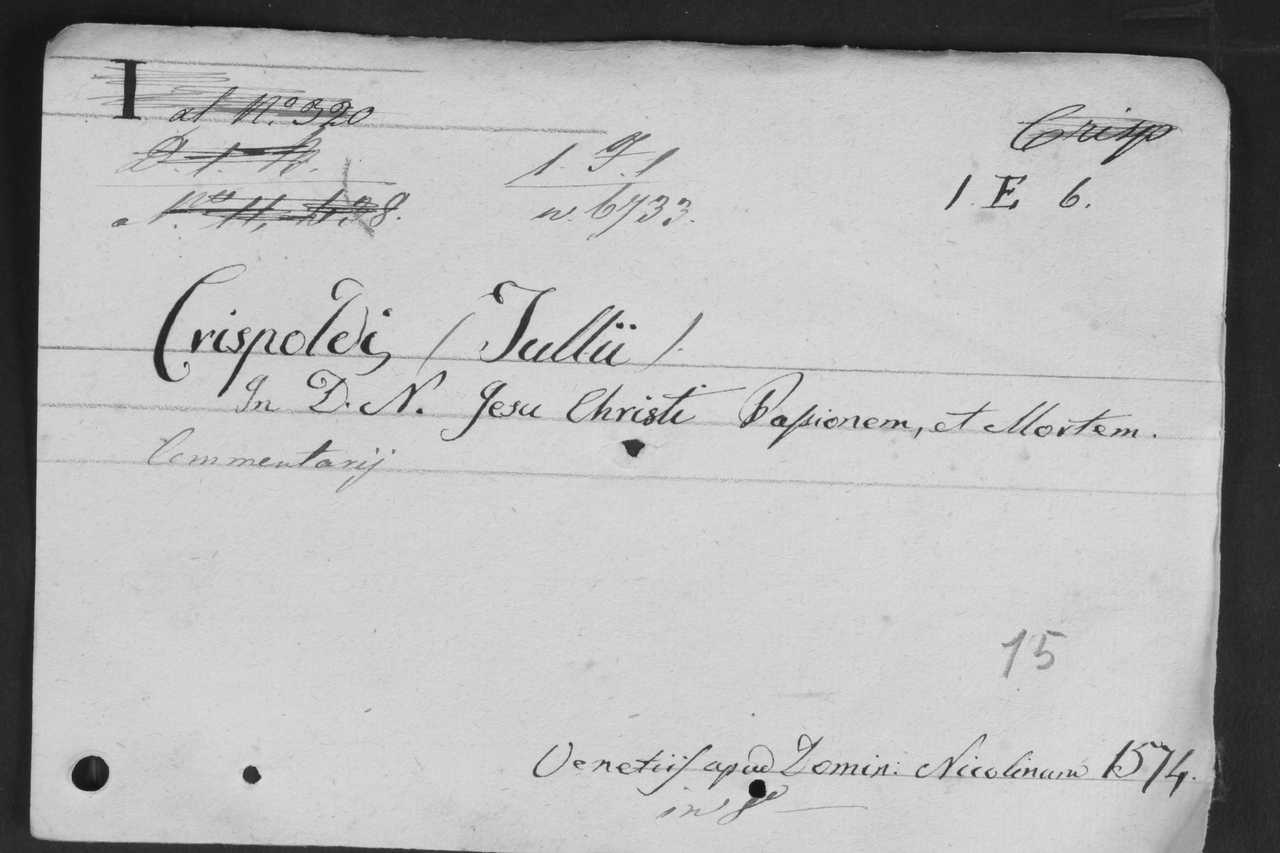 I
al N.º 320
Crisp
1. F. 1
1. E, 6.
n. 6733.
Crispoldi, (Tullii).
In D. N. Jesu Christi Paſsionem, et Mortem.
Commentarij
15
Venetiis apud Domin: Nicolinum 1574.
in 8º